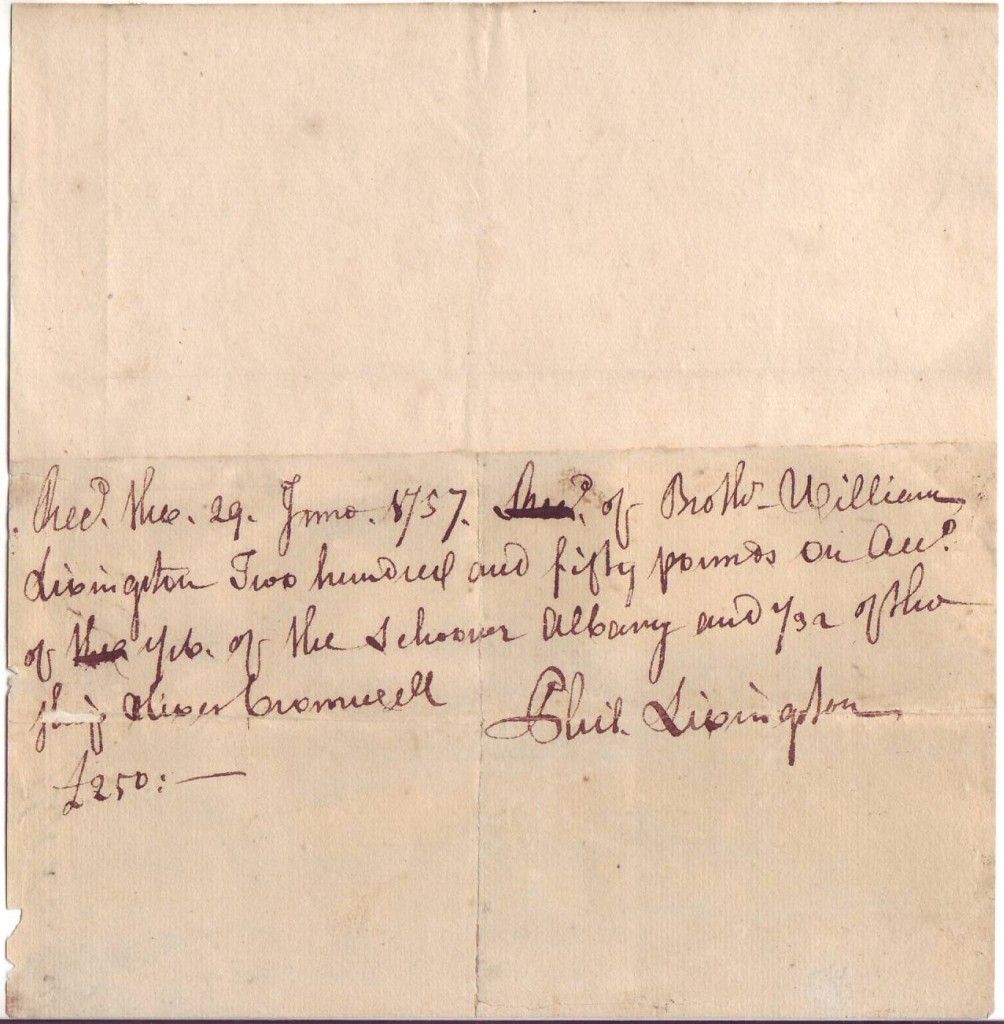 Rec.d the. 29. June. 1757. Rec.d of Broth.r William
Livingston Two hundred and fifty pounds on Acc.t
of the 1/16. of the Schooner Albany and 1/32 of the
ship Oliver Cromwell Phil. Livingston
£250:—